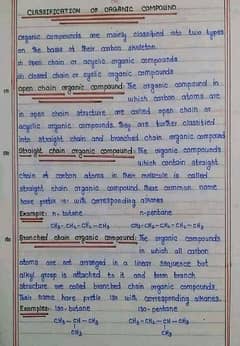 CLASSIFICATION OF ORGANIC COMPOUND
organic compounds are mainly classified into two types
on the basis of their carbon skeleton.
open chain or acyclic organic compounds
closed chain or cyclic organic compounds
open chain organic compound: The organic compound in
which carbon atoms are
in open chain structure are called open chain or
acyclic organic compounds. They are further classified
into straight chain and branched chain organic compound
Straight chain organic compound: The organic compounds
which contain straight
chain of carbon atoms in their molecule is called
straight chain organic compound. There common name
have prefix with corresponding alkanes
Example: n-butane n-pentane
CH3-CH2-CH2-CH3 CH3-CH2-CH2-CH2-CH3
Branched chain organic compound: The organic compounds
in which all carbon
atoms are not arranged in a linear sequence but
alkyl group is attached to it and form branch
structure are called branched chain organic compounds.
Their name have prefix iso with corresponding alkanes.
Examples: Iso-butane Iso-pentane
CH3-CH-CH3 CH3-CH2-CH-CH3
CH3 CH3